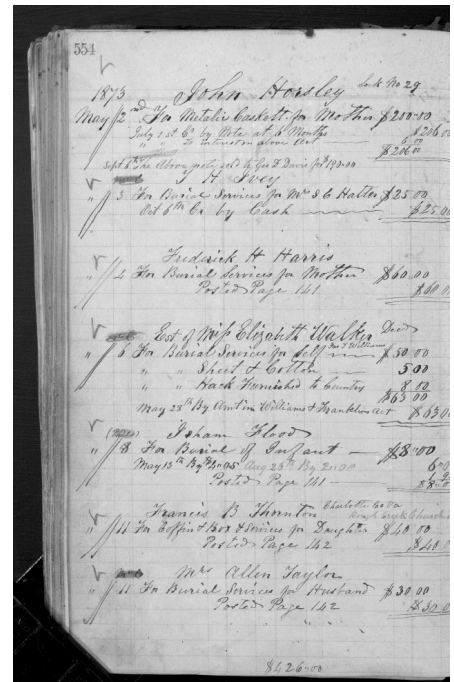 554
John Horsley
1873
May 2nd For Metalic Caskett for Mother $200.00
July 1st Cr by Note at 6 Months $206.00
" " to interest on above act 6.00
$206.00
Sept 8th The Above note sold to Davis for 190.00
T. H. Ivey
" 3 For Burial Services for Mrs S C Hatter $25.00
Oct 6th Cr. by Cash $25.00
Frederick H Harris
" 4 For Burial Services for Mother $60.00
Posted Page 141 $60.00
Est of Miss Elizabeth Walker Decd
" 6 For Burial Services for Self $50.00
" " Sheet & Cotton 5.00
" " Hack Furnished to Country 8.00
$63.00
May 28th By Amt in Williams & Franklins Act $63.00
Isham Flood
" 8 For Burial of Infant $8.00
May 13th By Aug 25th By 2.00
Posted Page 141
Francis B Thornton Charlotte Co Va
" 11 For Coffin & Box & Services for Daughter $40.00
Posted Page 142 $40.0
Mrs Allen Taylor
" 11 For Burial Services for Husband $30.00
Posted Page 142 $30.0
$426.00